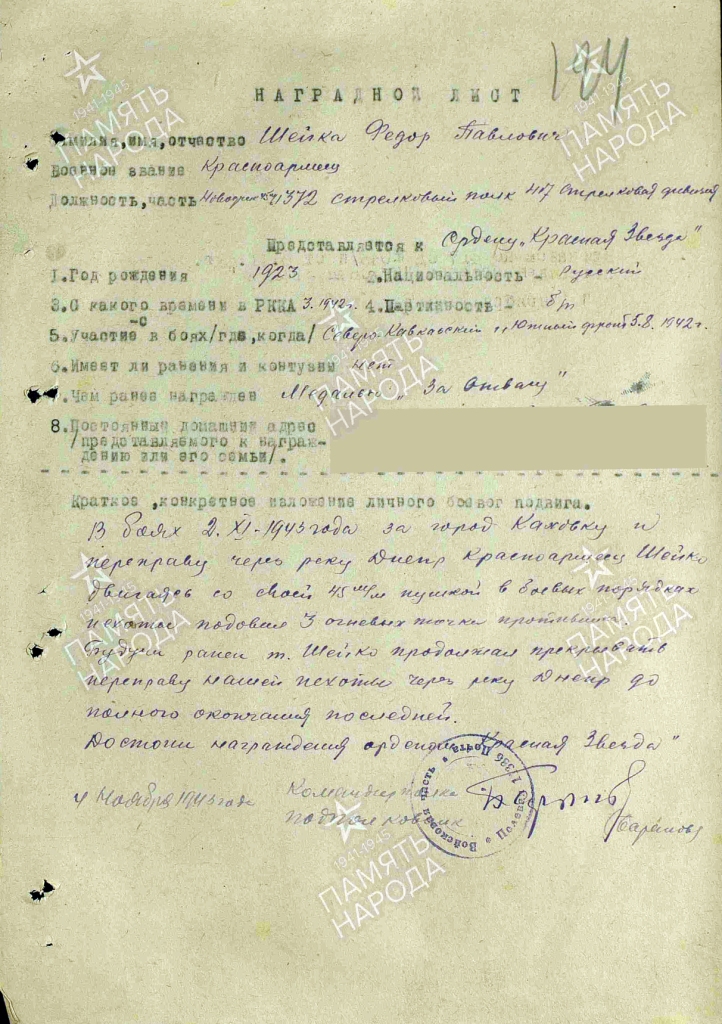 194
НАГРАДНОЙ ЛИСТ
Фамилия,имя,отчество Шейка Федор Павлович
Военное звание Красноармиец
Должность,часть 1372 стрелковый полк 417 стрелковая дивизия
Представляется к Ордену „Красная Звезда"
1.Год рождения 1923 2.Национальность - Русский
3.С какого времени в РККА 3.1942г. 4.Партийность - б/п
-с
5.Участие в боях/где,когда/ Северо Кавказский и Южный фронт 5.8.1942г.
6.Имеет ли ранения и контузии нет
7.Чем ранее награжден Медалью „За Отвагу"
8.Постоянный домашний адрес
/представляемого к награж-
дению или его семьи/.
Краткое ,конкретное изложение личного боевог подвига.
В боях 2.XI-1943 года за город Каховку и
переправу через реку Днепр Красноармиец Шейко
двигаясь со своей 45 м/м пушкой в боевых порядках
пехоты подовил 3 огневых точки противника.
Будучи ранен т. Шейко продолжал прекрывать
переправу нашей пехоты через реку Днепр до
полного окончания последней.
Достоин награждения орденом „Красная Звезда"
4 Ноября 1943 года Командир полка
подполковник Баранов
Войсковая часть Полевая Почта
ПАМЯТЬ НАРОДА
1941-1945